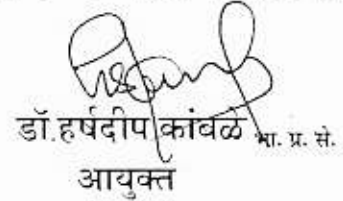 डॉ.हर्षदीप कांबळे भा. प्र. से.
आयुक्त